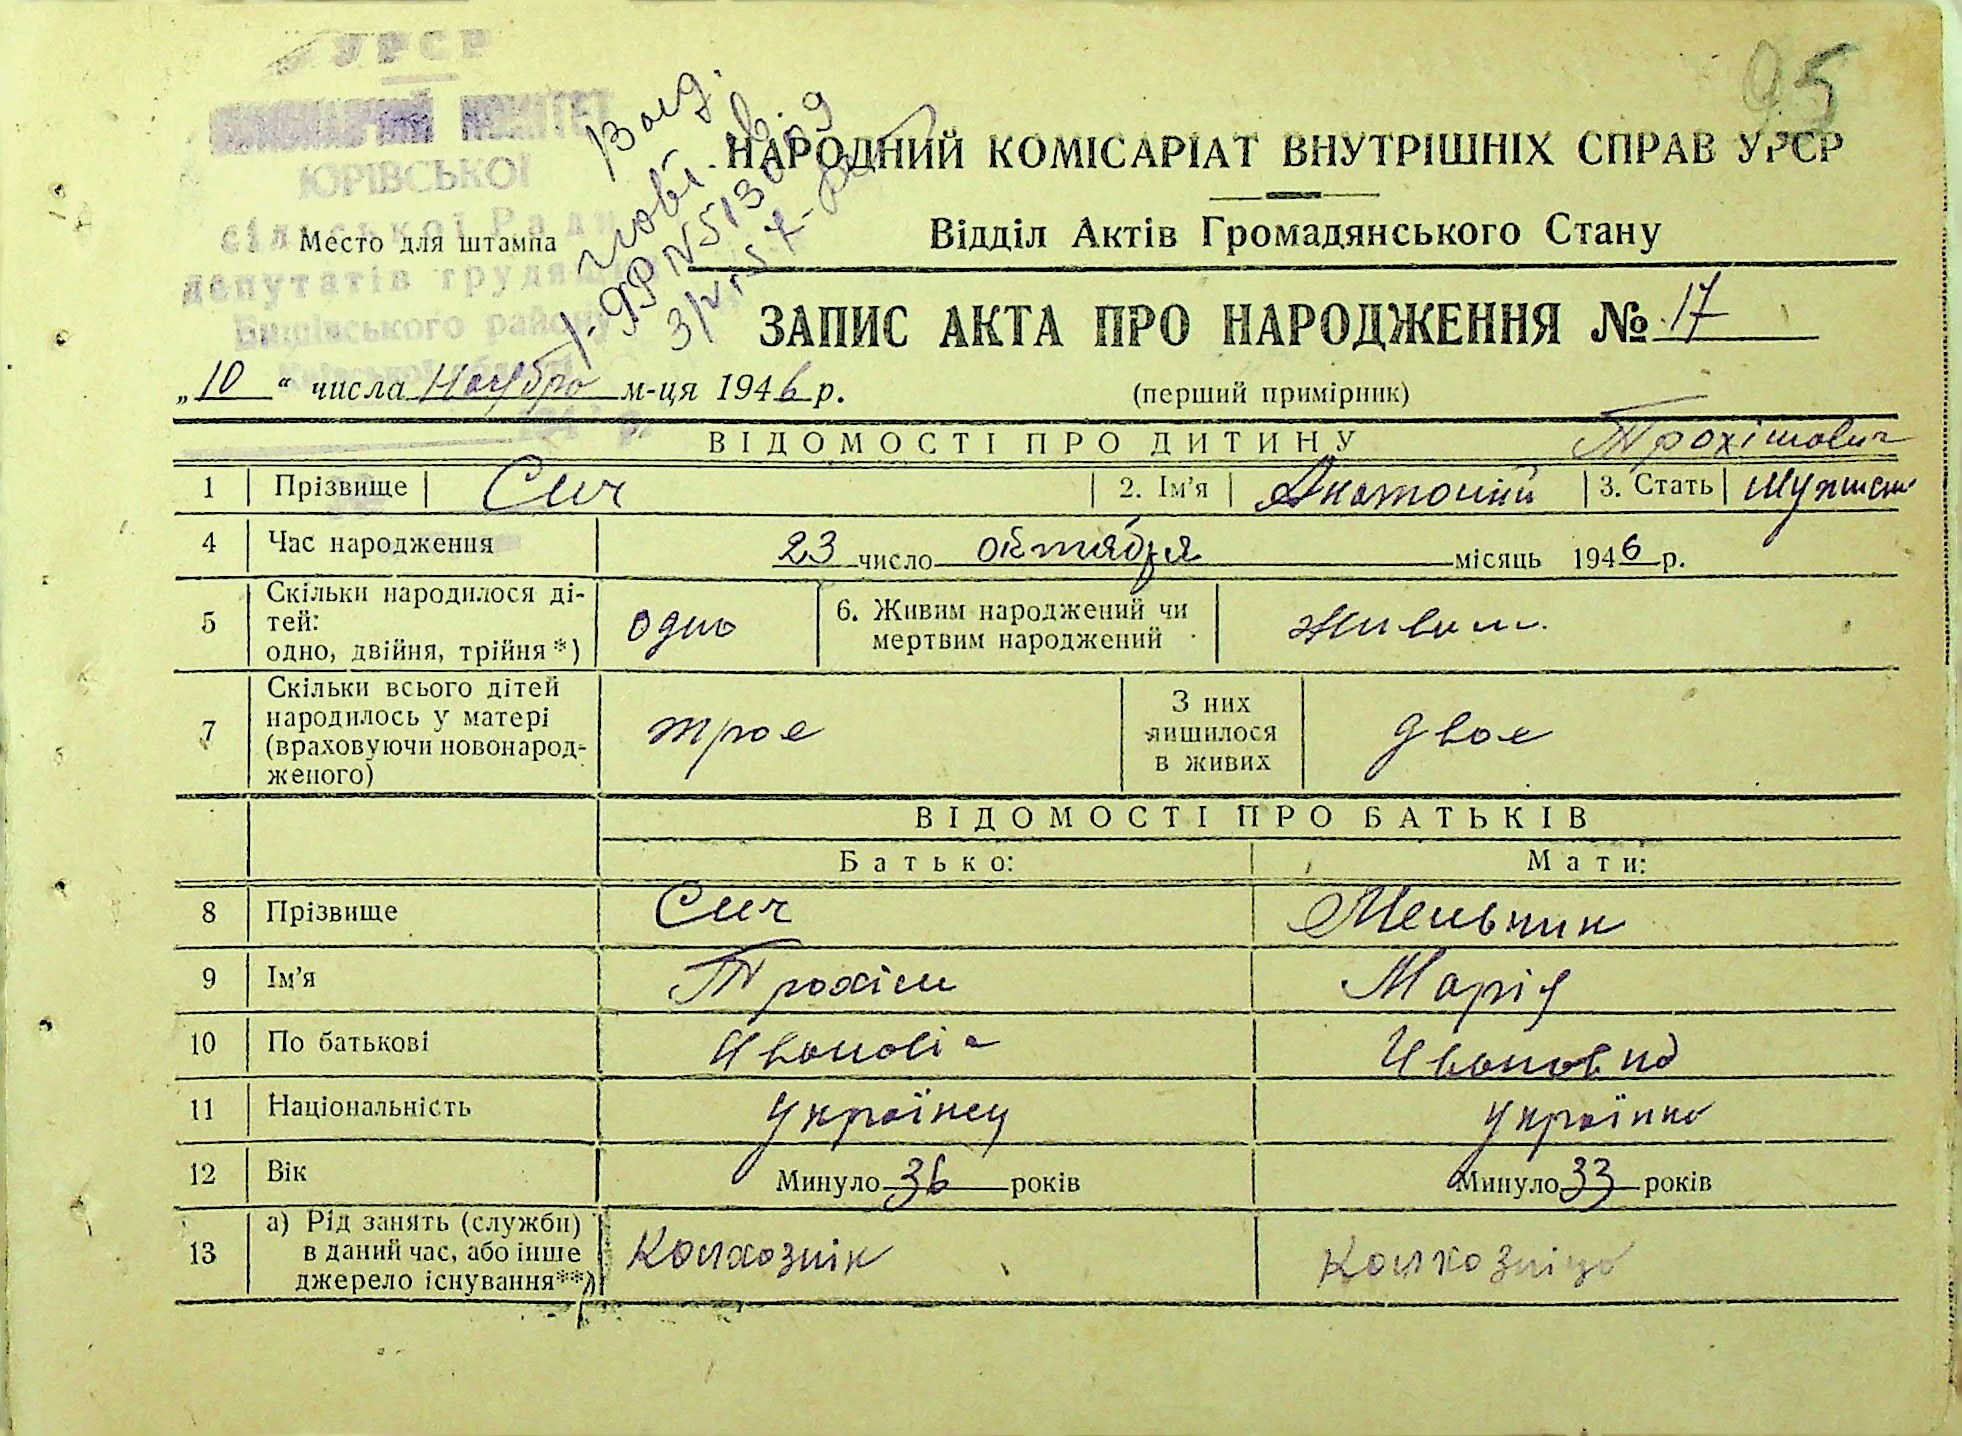 УРСР
95
ВИКОНАВЧИЙ КОМІТЕТ
ЮРІВСЬКОЇ
сільської Ради
депутатів трудящих
Бишівського району
Київської області
Вид.
нові. св.
ЯР N 513
НАРОДНИЙ КОМІСАРІАТ ВНУТРІШНІХ СПРАВ УРСР
Место для штампа
Відділ Актів Громадянського Стану
ЗАПИС АКТА ПРО НАРОДЖЕННЯ № 17
„10“ числа Ноубро м-ця 1946 р.
(перший примірник)
ВІДОМОСТІ ПРО ДИТИНУ Трохімович
1 Прізвище Сич 2. Ім'я Анатолий 3. Стать Мужск.
4 Час народження 23 число октября місяць 1946 р.
5 Скільки народилося ді-
тей:
одно, двійня, трійня*) одно
6. Живим народжений чи
мертвим народжений живим.
7 Скільки всього дітей
народилось у матері
(враховуючи новонарод-
женого) троє
З них
лишилося
в живих двоє
ВІДОМОСТІ ПРО БАТЬКІВ
Батько: Мати:
8 Прізвище Сич Мельник
9 Ім'я Трохім Марія
10 По батькові Ивановіч Ивановна
11 Національність Українец Українка
12 Вік Минуло 36 років Минуло 33 років
13 а) Рід занять (служби)
в даний час, або інше
джерело існування**) Колхознік Колхозніца